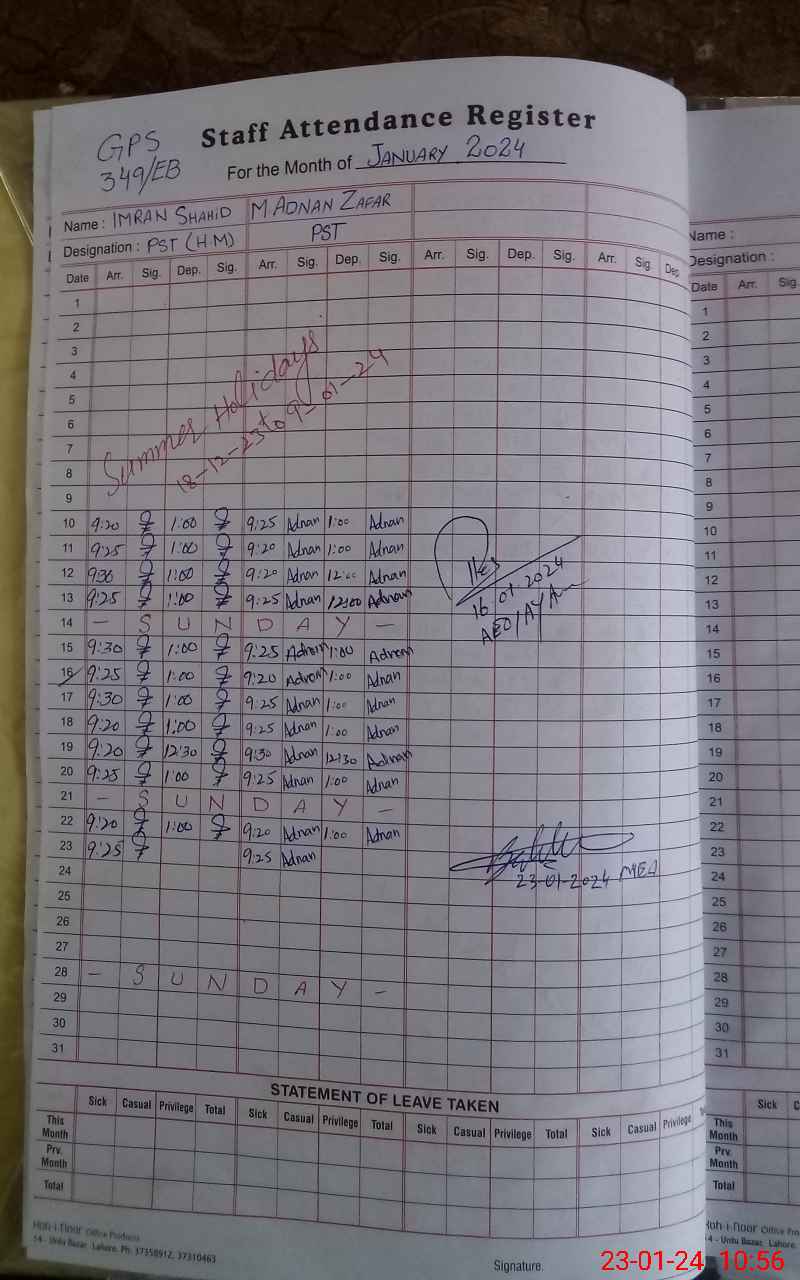 GPS
349/EB
Staff Attendance Register
For the Month of JANUARY 2024
Name : IMRAN SHAHID M ADNAN ZAFAR
Designation : PST (H.M) PST
Date Arr. Sig. Dep. Sig. Arr. Sig. Dep. Sig. Arr. Sig. Dep. Sig. Arr. Sig. Dep
1
2
3
4
5
6
7
8
9
Summer Holidays
18-12-23 to 9-01-24
10 9:20 1:00 9:25 Adnan 1:00 Adnan
11 9:25 1:00 9:20 Adnan 1:00 Adnan
12 930 1:00 9:20 Adnan 12:00 Adnan
13 9:25 1:00 9:25 Adnan 12:00 Adnan
16.01.2024
14 - S U N D A Y -
15 9:30 1:00 9:25 Adnan 1:00 Adnan
16 9:25 1:00 9:20 Adnan 1:00 Adnan
17 9:30 1:00 9:25 Adnan 1:00 Adnan
18 9:20 1:00 9:25 Adnan 1:00 Adnan
19 9:20 12:30 9:30 Adnan 12:30 Adnan
20 9:25 1:00 9:25 Adnan 1:00 Adnan
21 - S U N D A Y -
22 9:20 1:00 9:20 Adnan 1:00 Adnan
23 9:25 9:25 Adnan
23-01-2024 MEA
24
25
26
27
28 - S U N D A Y -
29
30
31
STATEMENT OF LEAVE TAKEN
Sick Casual Privilege Total Sick Casual Privilege Total Sick Casual Privilege Total Sick Casual Privilege
This Month
Prv. Month
Total
Office Products
14 - Urdu Bazar, Lahore. Ph. 37358912, 37310463
Signature.
Name :
Designation :
Date Arr. Sig
1
2
3
4
5
6
7
8
9
10
11
12
13
14
15
16
17
18
19
20
21
22
23
24
25
26
27
28
29
30
31
Sick
This Month
Prv. Month
Total
14 - Urdu Bazar, Lahore.
23-01-24 10:56